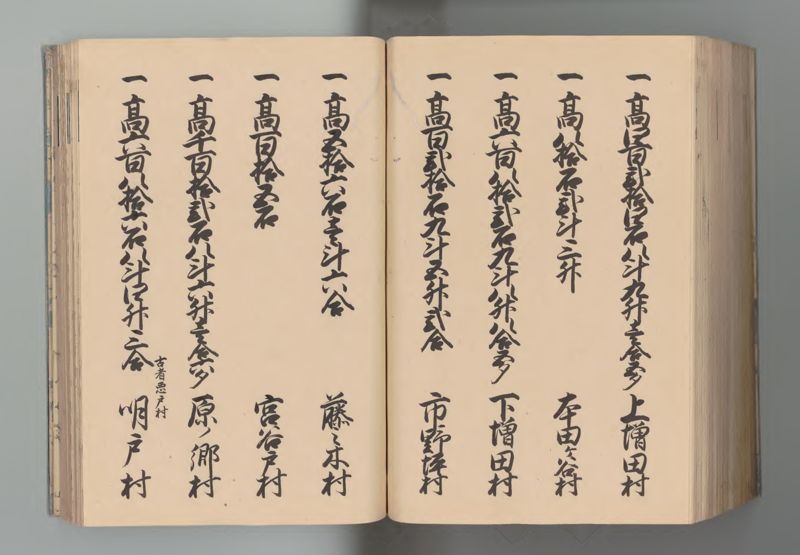 一 高四百弐拾四石八斗九升壱合五夕 上増田村
一 高八拾石弐斗三升 本田ケ谷村
一 高六百八拾弐石九斗八升八合五夕 下増田村
一 高百弐拾石九斗五升弐合 市野坪村
一 高五拾六石壱斗六合 藤之木村
一 高百拾五石 宮谷戸村
一 高千百拾弐石八斗六升壱合六夕 原ノ郷村
一 高六百八拾六石八斗四升三合 古者悪戸村 明戸村